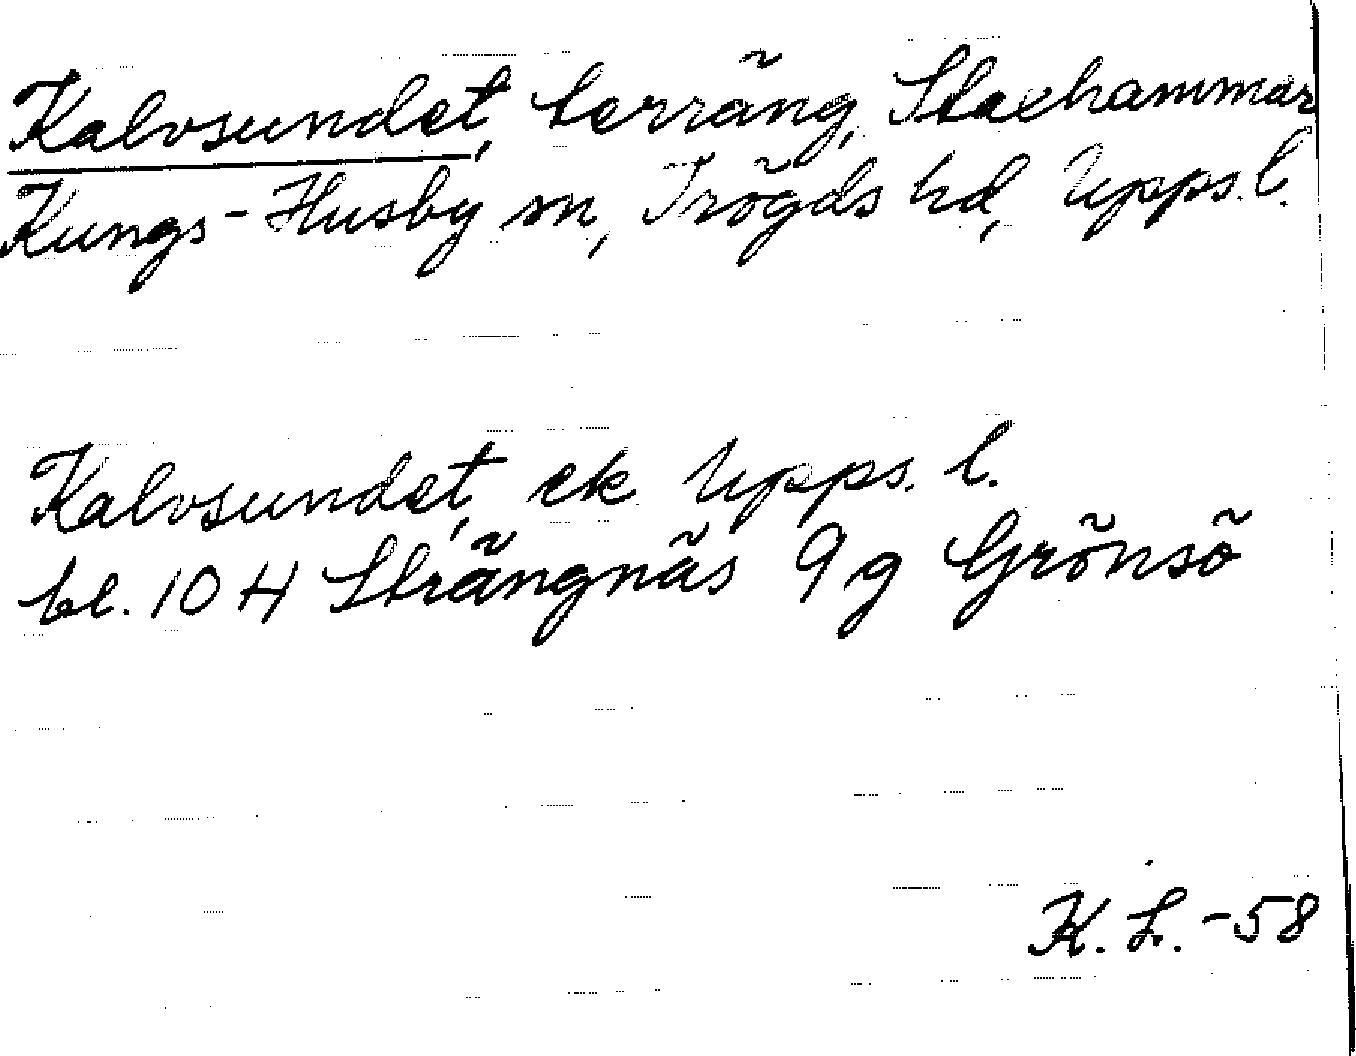 Kalvsundet, terräng, Stachammar
Kungs-Husby sn, Trögds hd, Upps. l.
Kalvsundet, ek Upps. l.
bl. 104 Strängnäs 9 g Grönsö
K. L. -58